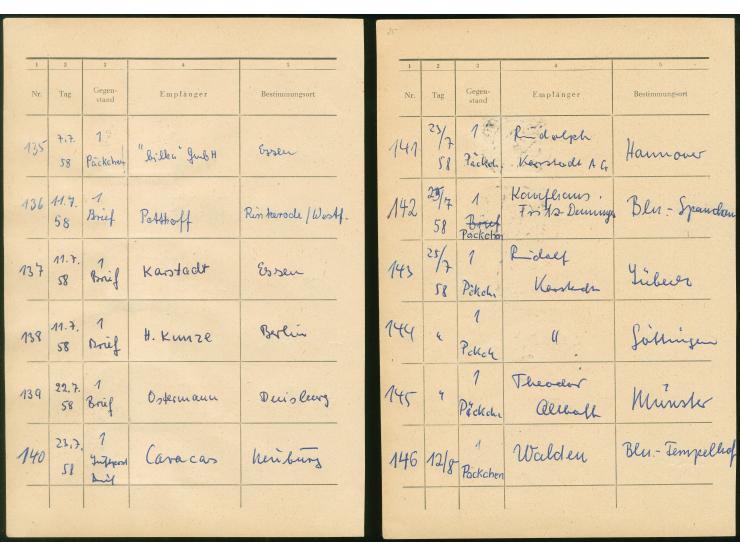 1 2 3 4 5
Nr. Tag Gegen-stand Empfänger Bestimmungsort
135 7.7. 58 1 Päckchen "bilka" GmbH Essen
136 11.7. 58 1 Brief Potthoff Rinkerode/Westf.
137 11.7. 58 1 Brief Karstadt Essen
138 11.7. 58 1 Brief H. Kunze Berlin
139 22.7. 58 1 Brief Ostermann Duisburg
140 23.7. 58 1 Luftpost Brief Caracas Neuburg
25
1 2 3 4 5
Nr. Tag Gegen-stand Empfänger Bestimmungsort
141 23/7 58 1 Päckch. Rudolph Karstadt A.G. Hannover
142 25/7 58 1 Brief Päckchen Kaufhaus Fritz Bln.-Spandau
143 25/7 58 1 Päckch. Rudolf Karstadt Lübeck
144 " 1 Pckch. " Göttingen
145 " 1 Päckch. Theodor Althoff Münster
146 12/8 1 Päckchen Walden Bln.-Tempelhof